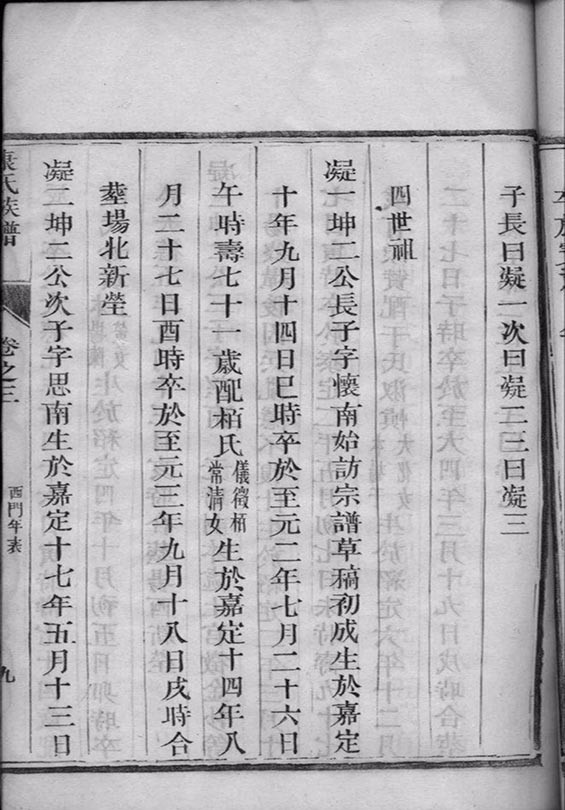 子長曰凝一次曰凝二三曰凝三
四世祖
凝一坤二公長子字懷南始訪宗譜草稿初成生於嘉定
十年九月十四日巳時卒於至元二年七月二十六日
午時壽七十一歲配栢氏儀徵栢常清女生於嘉定十四年八
月二十七日酉時卒於至元三年九月十八日戌時合
塟場北新塋
凝二坤二公次子字思南生於嘉定十七年五月十三日
氏族譜
卷之三
西門年表
九